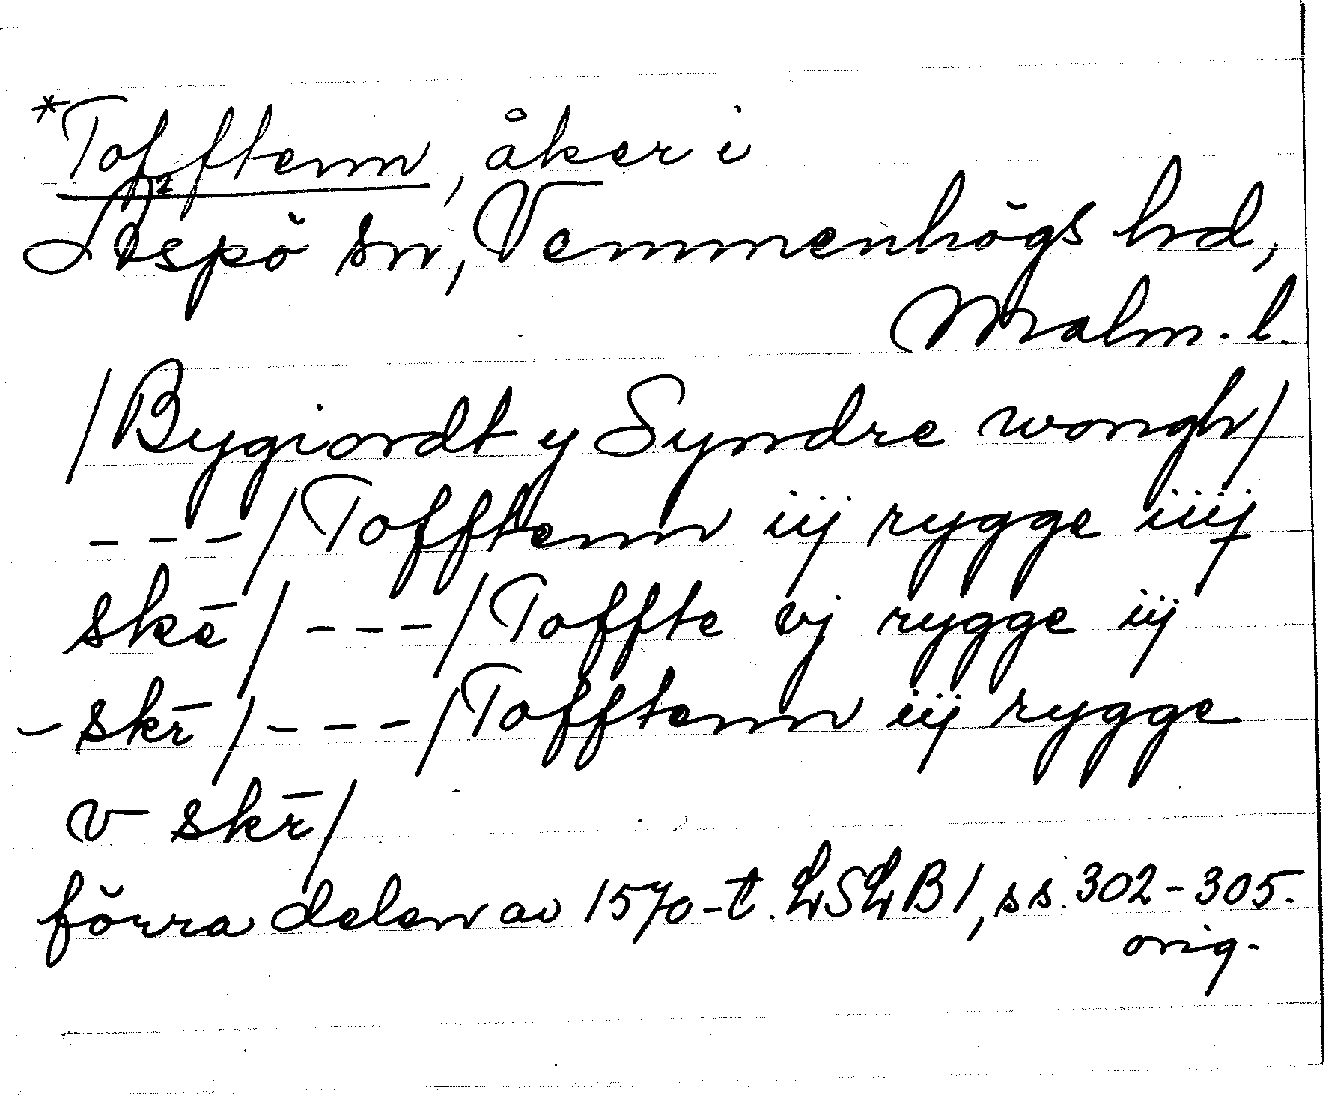 *Tofftenn, åker i
Äspö sn, Vemmenhögs hd,
Malm. l.
/Bygiordt y Syndre wongh/
---/Tofftenn iij rygge iiij
skē/---/Toffte vj rygge iij
- skr̄/---/Tofftenn iij rygge
v skr̄/
förra delen av 1570-t. LSLB 1, ss. 302-305.
orig.